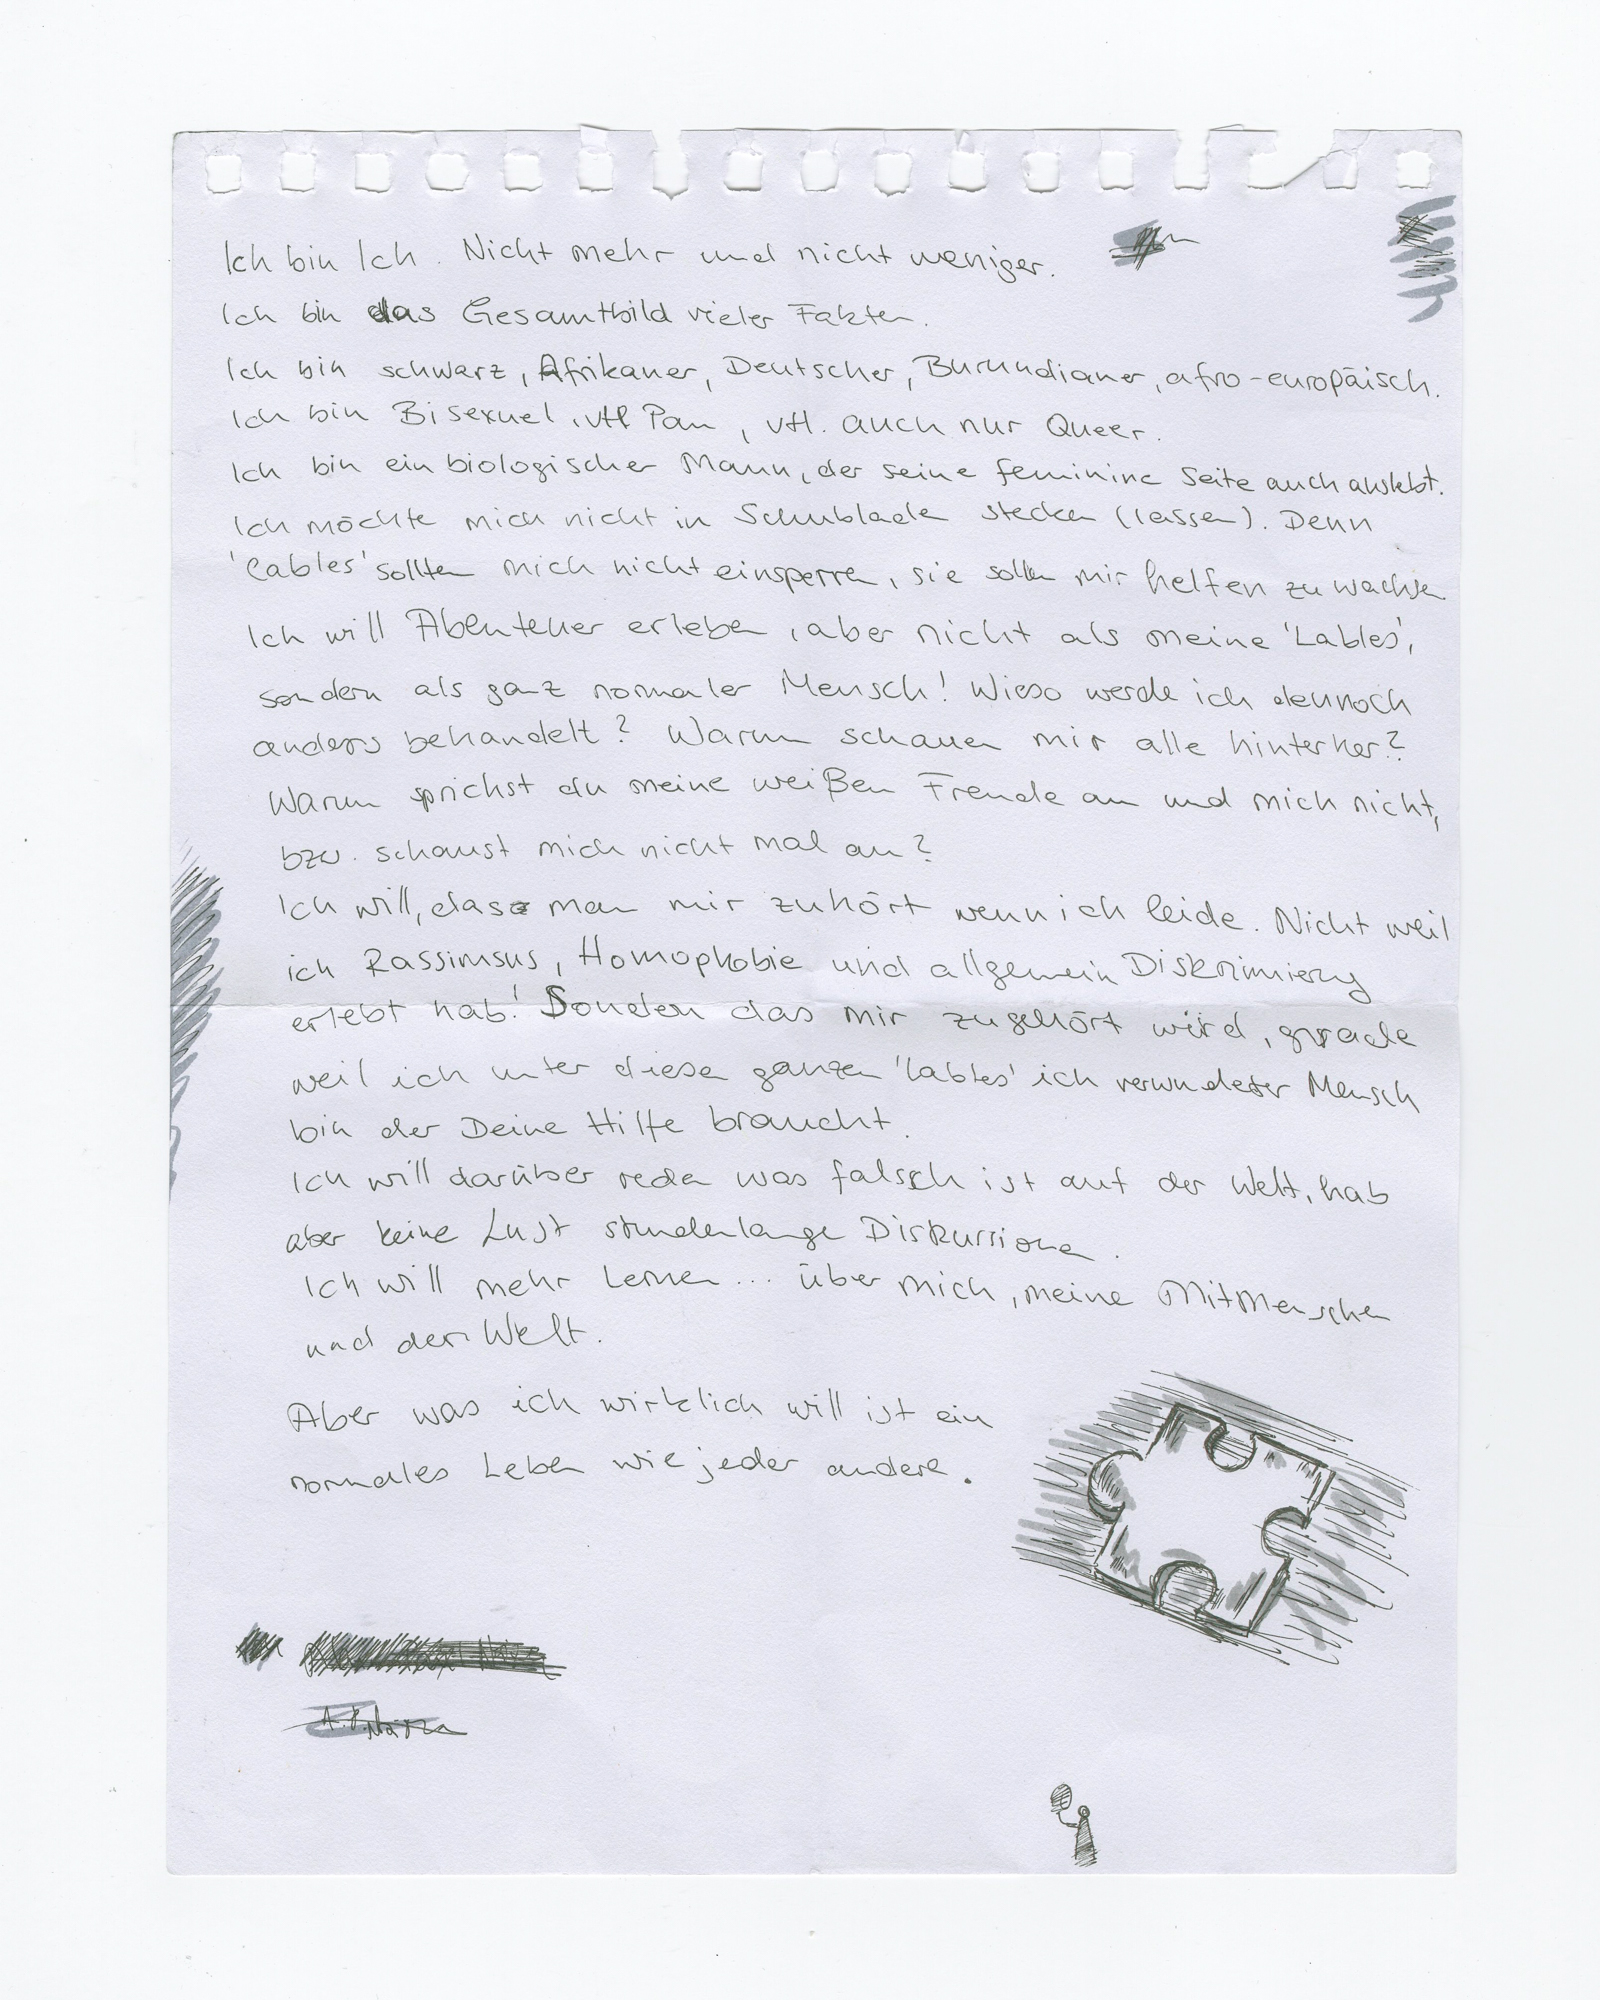 Ich bin Ich. Nicht mehr und nicht weniger.
Ich bin das Gesamtbild vieler Fakten.
Ich bin schwarz, Afrikaner, Deutscher, Burundianer, afro-europäisch.
Ich bin Bisexuel, vtl Pan, vtl. auch nur Queer.
Ich bin ein biologischer Mann, der seine feminine Seite auch auslebt.
Ich möchte mich nicht in Schubladen stecken (lassen). Denn
'Lables' sollten mich nicht einsperren, sie sollen mir helfen zu wachsen
Ich will Abenteuer erleben, aber nicht als meine 'Lables',
sondern als ganz normaler Mensch! Wieso werde ich dennoch
anders behandelt? Warum schauen mir alle hinterher?
Warum sprichst du meine weißen Freunde an und mich nicht,
bzw. schaust mich nicht mal an?
Ich will, dass man mir zuhört wenn ich leide. Nicht weil
ich Rassimsus, Homophobie und allgemein Diskriminierung
erlebt hab! Sondern das mir zugehört wird, gerade
weil ich unter diesen ganzen 'Lables' ich verwundeter Mensch
bin der Deine Hilfe braucht.
Ich will darüber reden was falsch ist auf der Welt, hab
aber keine Lust stundenlange Diskussionen.
Ich will mehr Lernen... über mich, meine Mitmenschen
und der Welt.
Aber was ich wirklich will ist ein
normales Leben wie jeder andere.